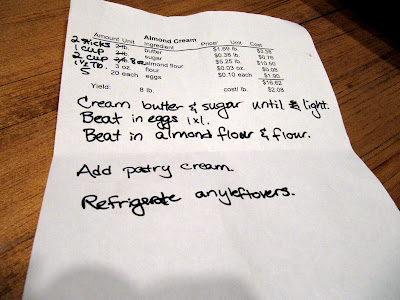 Almond Cream
Amount Unit Ingredient Price/ Unit Cost
2 sticks 2 lb. butter $1.69 lb. $3.38
1 cup 2 lb. sugar $0.38 lb. $0.76
2 cup almond flour $5.25 lb. $10.50
1 1/2 Tb. 3 oz. flour $0.03 oz.
5 20 each eggs $0.10 each $1.90
$16.62
Yield: 8 lb. cost/lb. $2.08
Cream butter & sugar until light.
Beat in eggs 1x1.
Beat in almond flour & flour.
Add pastry cream.
Refrigerate any leftovers.